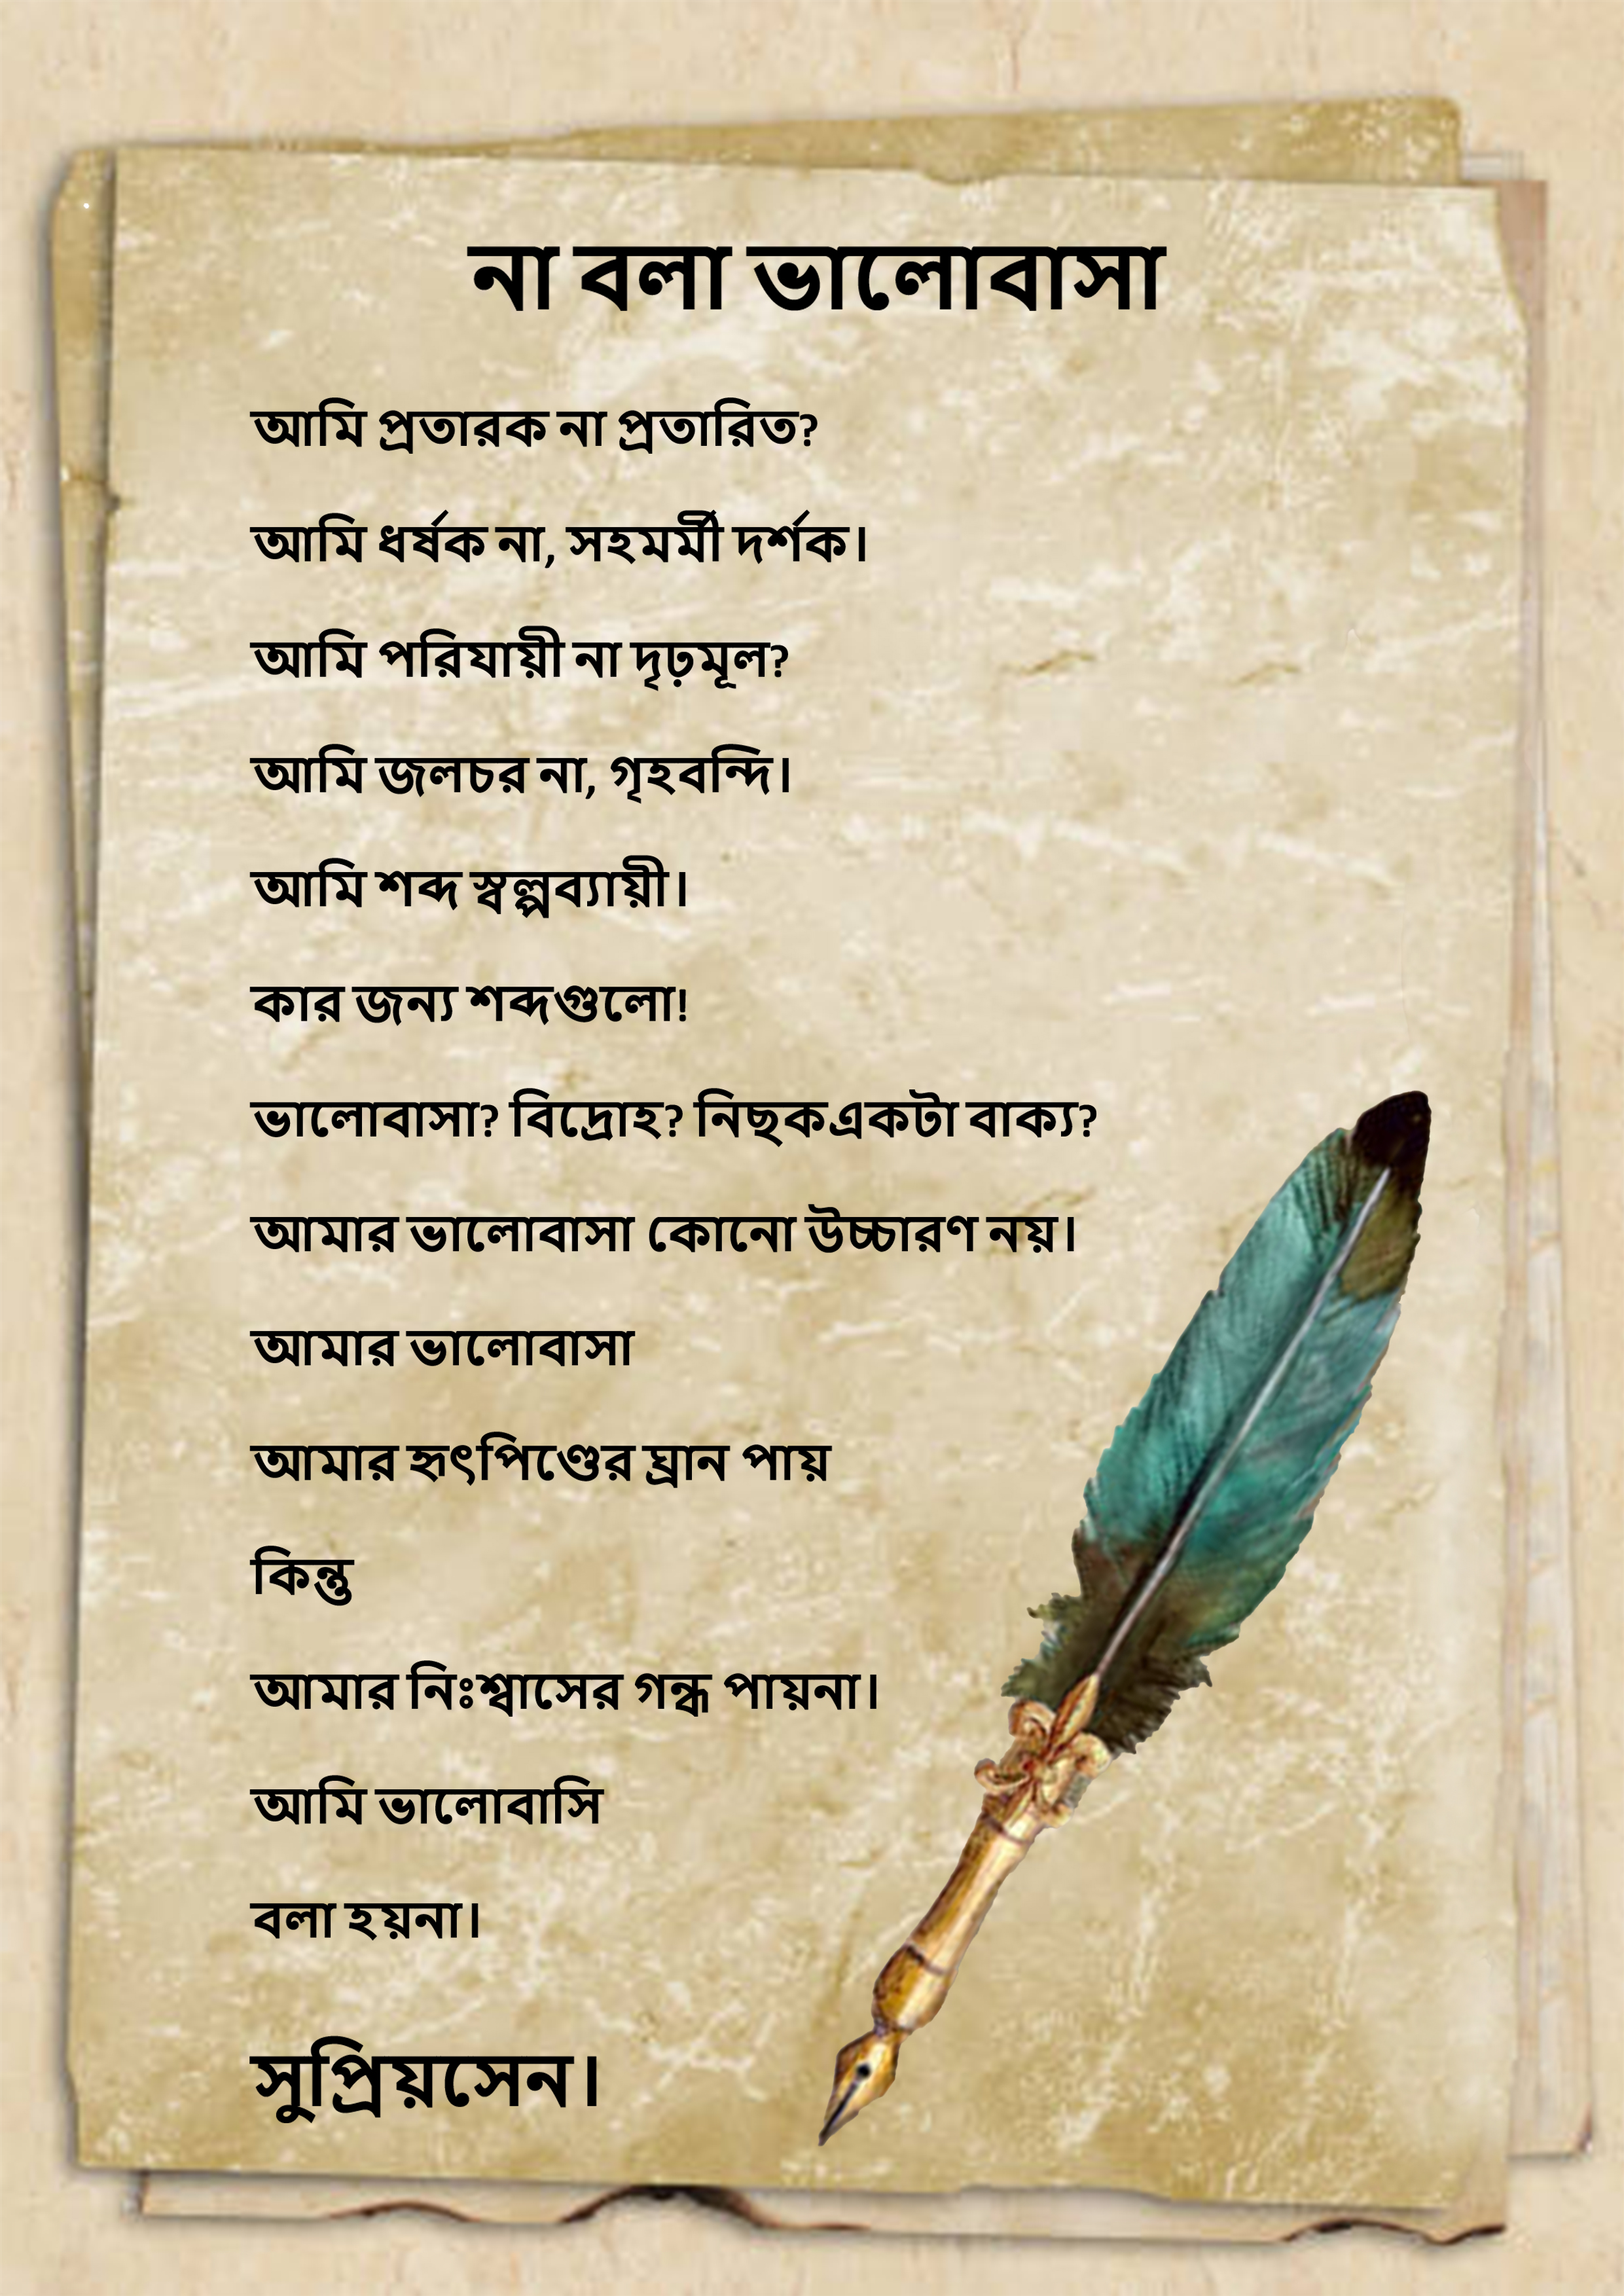 না বলা ভালোবাসা
আমি প্রতারক না প্রতারিত?
আমি ধর্ষক না, সহমর্মী দর্শক।
আমি পরিযায়ী না দৃঢ়মূল?
আমি জলচর না, গৃহবন্দি।
আমি শব্দ স্বল্পব্যায়ী।
কার জন্য শব্দগুলো!
ভালোবাসা? বিদ্রোহ? নিছকএকটা বাক্য?
আমার ভালোবাসা কোনো উচ্চারণ নয়।
আমার ভালোবাসা
আমার হৃৎপিণ্ডের ঘ্রান পায়
কিন্তু
আমার নিঃশ্বাসের গন্ধ পায়না।
আমি ভালোবাসি
বলা হয়না।
সুপ্রিয়সেন।